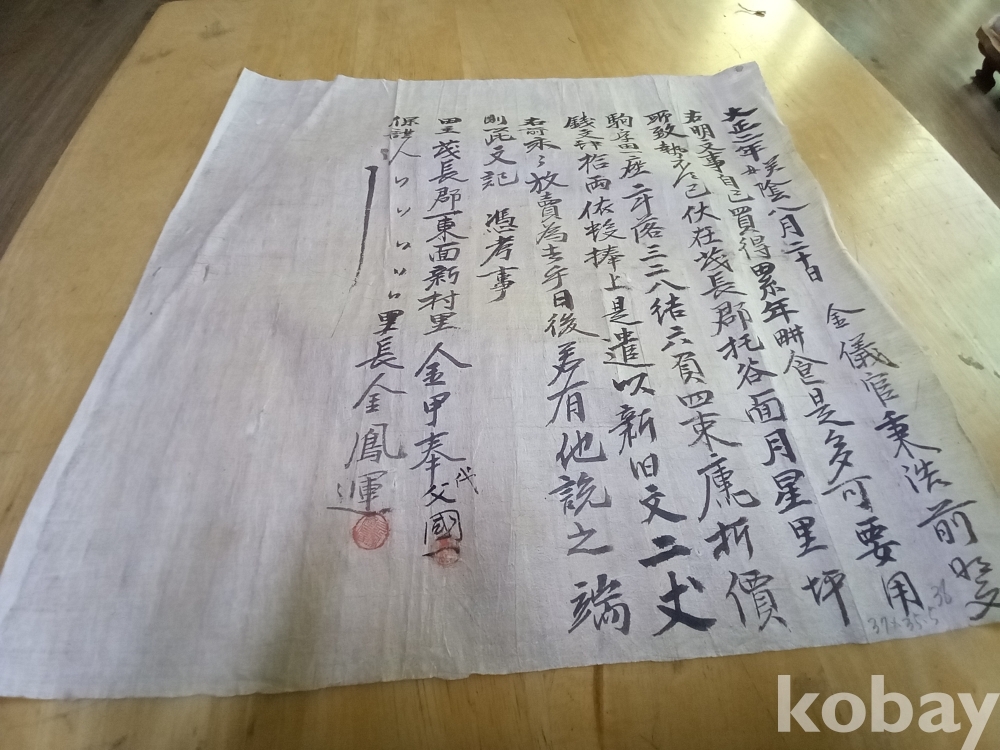 大正二年癸丑陰八月二十日 金儀官秉浩前明文
右明文事自己買得累年畊食是多可要用
所致勢不得已伏在茂長郡托谷面月星里坪
駒字田一座二斗落三二八結六負四束廤折價
錢文肆拾兩依數捧上是遣以新旧文二丈
右前永永放賣為去乎日後若有他說之端
則此文記 憑考事
田主茂長郡一東面新村里 金甲奉代父國一
保證人〃〃〃〃〃里長金鳳運
37x35.5
36
kobay